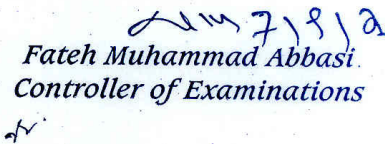 Fateh Muhammad Abbasi
Controller of Examinations